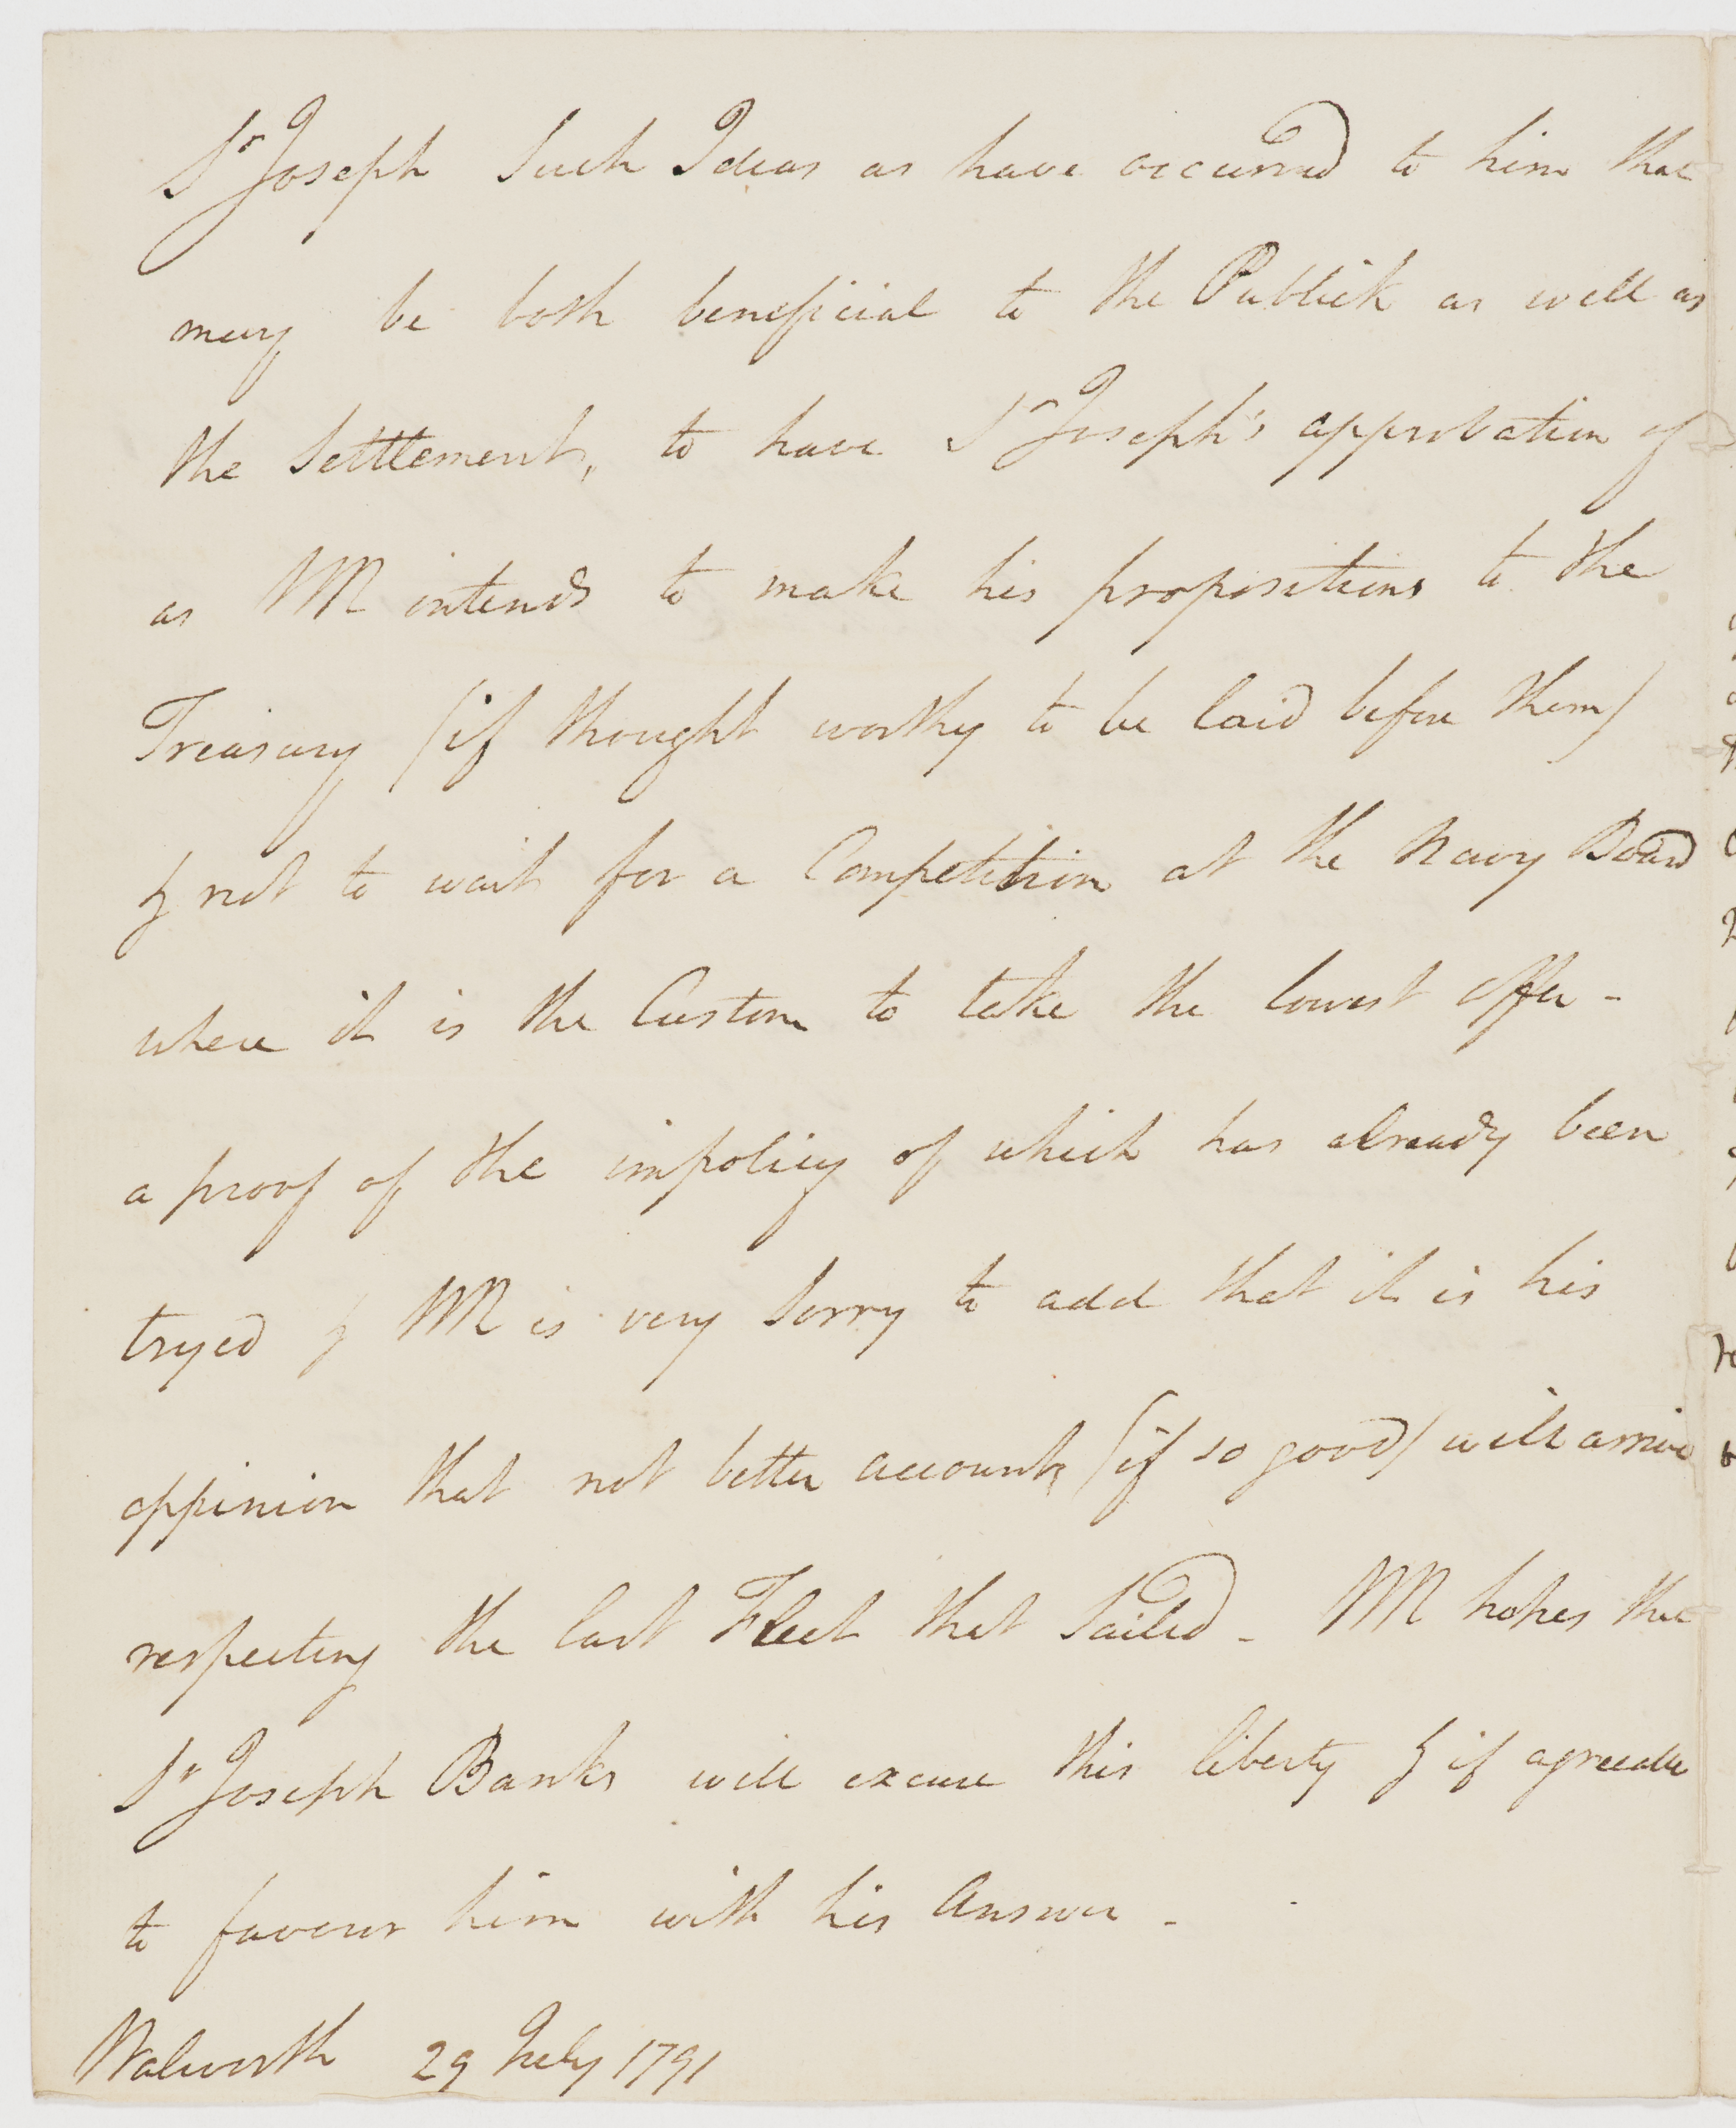 Sr Joseph Such Ideas as have occurred to him that
may be both beneficial to the Publick as well as
the Settlement, to have Sr Joseph's approbation of
as MR intends to make his propositions to the
Treasury (if thought worthy to be laid before them)
& not to wait for a Competition at the Navy Board
where it is the Custom to take the lowest offer -
a proof of the impolicy of which has already been
tryed & MR is very Sorry to add that it is his
oppinion that not better accounts (if so good) will arrive
respecting the last Fleet that Sailed - MR hopes that
Sr Joseph Banks will excuse this liberty & if agreeable
to favour him with his Answer -
Walworth 29 July 1791